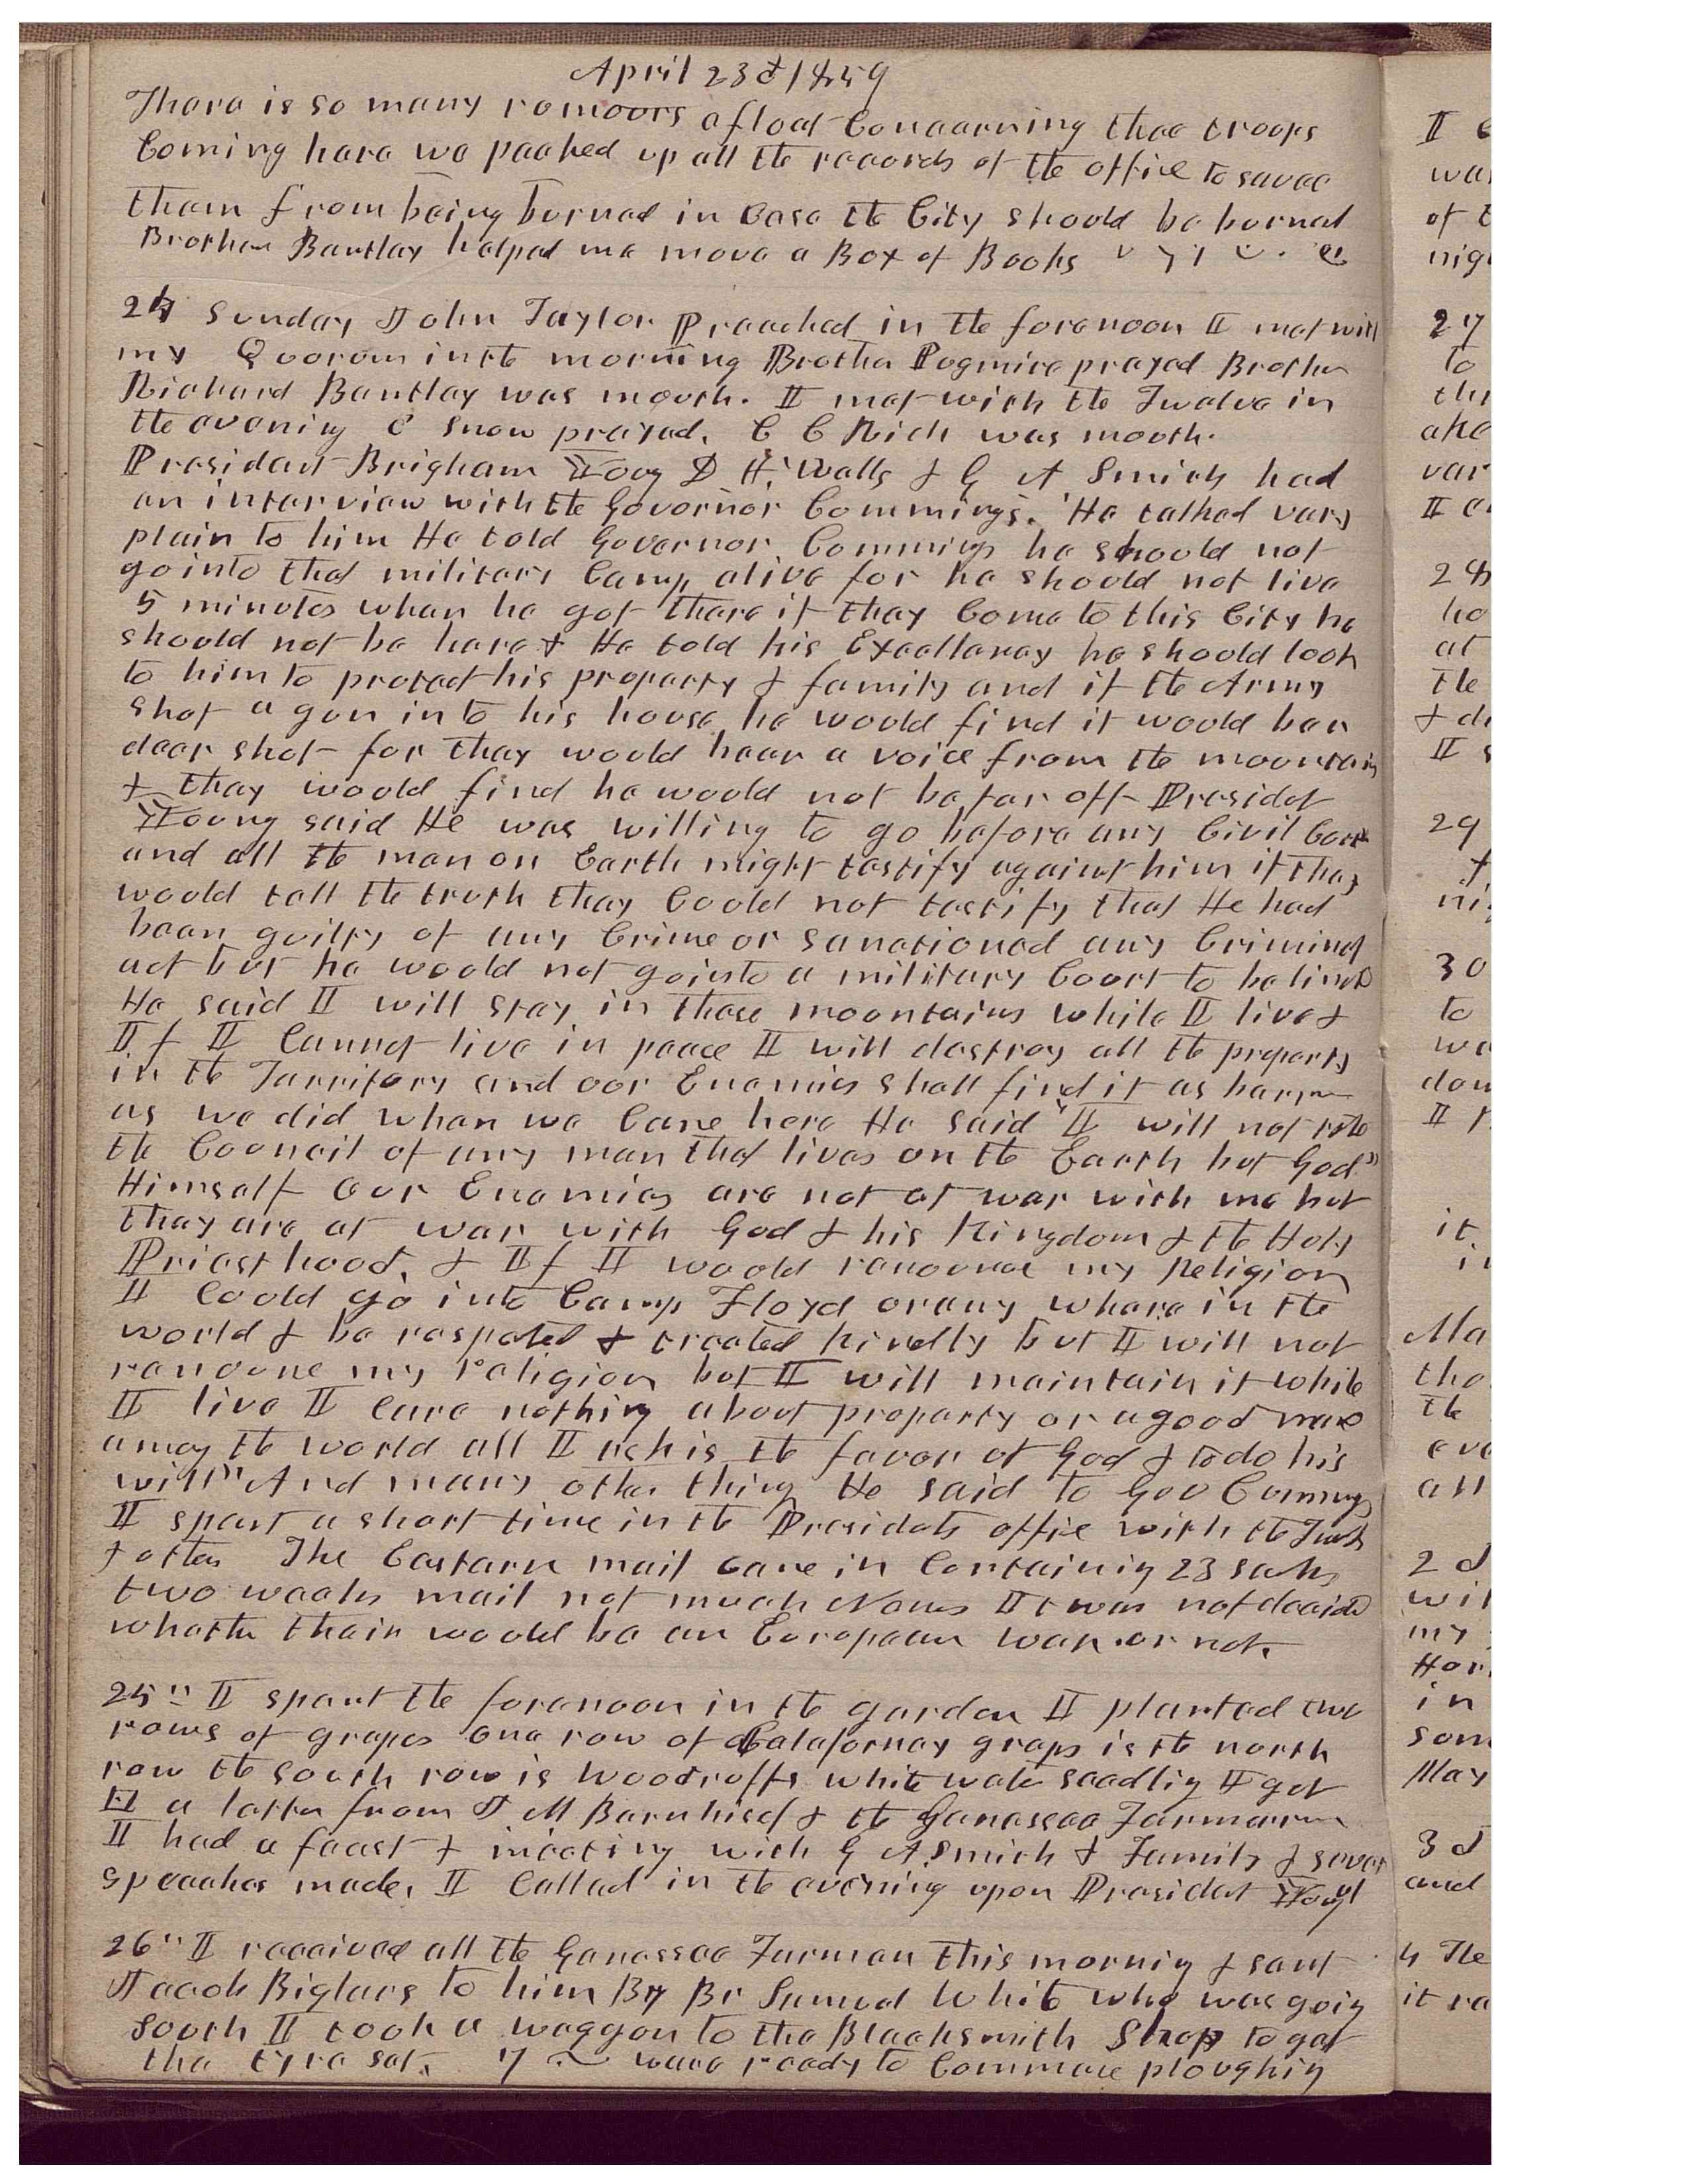 April 23d 1859
There is so many romoors afload Concerning thee troops
Coming here we packed up all the records of the office to savee
them from being burned in Case the City should be burned
Brother Bentley helped me move a Box of Books
24 Sunday John Taylor Preached in the forenoon I met with
my Quorum in the morning Brother Pogmire prayed Brother
Richard Bentley was mouth. I met with the Twelve in
the evening E Snow prayed. C C Rich was mouth.
President Brigham Young D H. Wells & G A Smith had
an interview with the Governor Commings. He talked very
plain to him He told Governor Commings he should not
go into that military Camp alive for he should not live
5 minutes when he got there if they Come to this City he
should not be here & He told his Excellency he should look
to him to protect his property & family and if the Army
shot a gun into his house he would find it would be a
dear shot for they would hear a voice from the mountains
& they would find he would not be far off Presidet
Young said He was willing to go before any Civil Court
and all the men on Earth might testify against him if they
would tell the truth they Could not testify that He had
been guilty of any Crime or sanctioned any Criminal
act but he would not go into a military Court to be
He said I will stay in these mountains while I live &
If I Cannot live in peace I will destroy all the property
in the Territory and our Enemies shall find it as barren
as we did when we Came here He said "I will not
the Council of any man that lives on the Earth but God"
Himself Our Enemies are not at war with me but
they are at war with God & his Kingdom & the Holy
Priesthood, & If I would renounce my Religion
I Could go into Camp Floyd or any where in the
world & be respected & treated kindly but I will not
renoune my religion but I will maintain it while
I live I Care nothing about property or a good name
amog the world all I ask is the favor of God & to do his
will" And many other thing He said to Gov Cummings
I spent a short time in the Presidets office with the Twelve
& other The Eastern mail came in Containing 23 sacks
two weeks mail not much News It was not decided
whether their would be an European war or not.
25" I spent the forenoon in the garden I planted two
rows of grapes one row of Calafornay graps is the north
row the south row is Woodruffs white water seedlig I got
a letter from J M Barnhisel & the Genessee Farmer
I had a feast & meeting with G A Smith & Family & several
speeches made, I Called in the evening upon Presidet Young
26" I received all the Genessee Farmer this morning & sent
Jacob Biglars to him By Br Samuel White who was goig
South I took a waggon to the Blacksmith Shop to get
the tyre set. 7 were ready to Commence ploughing